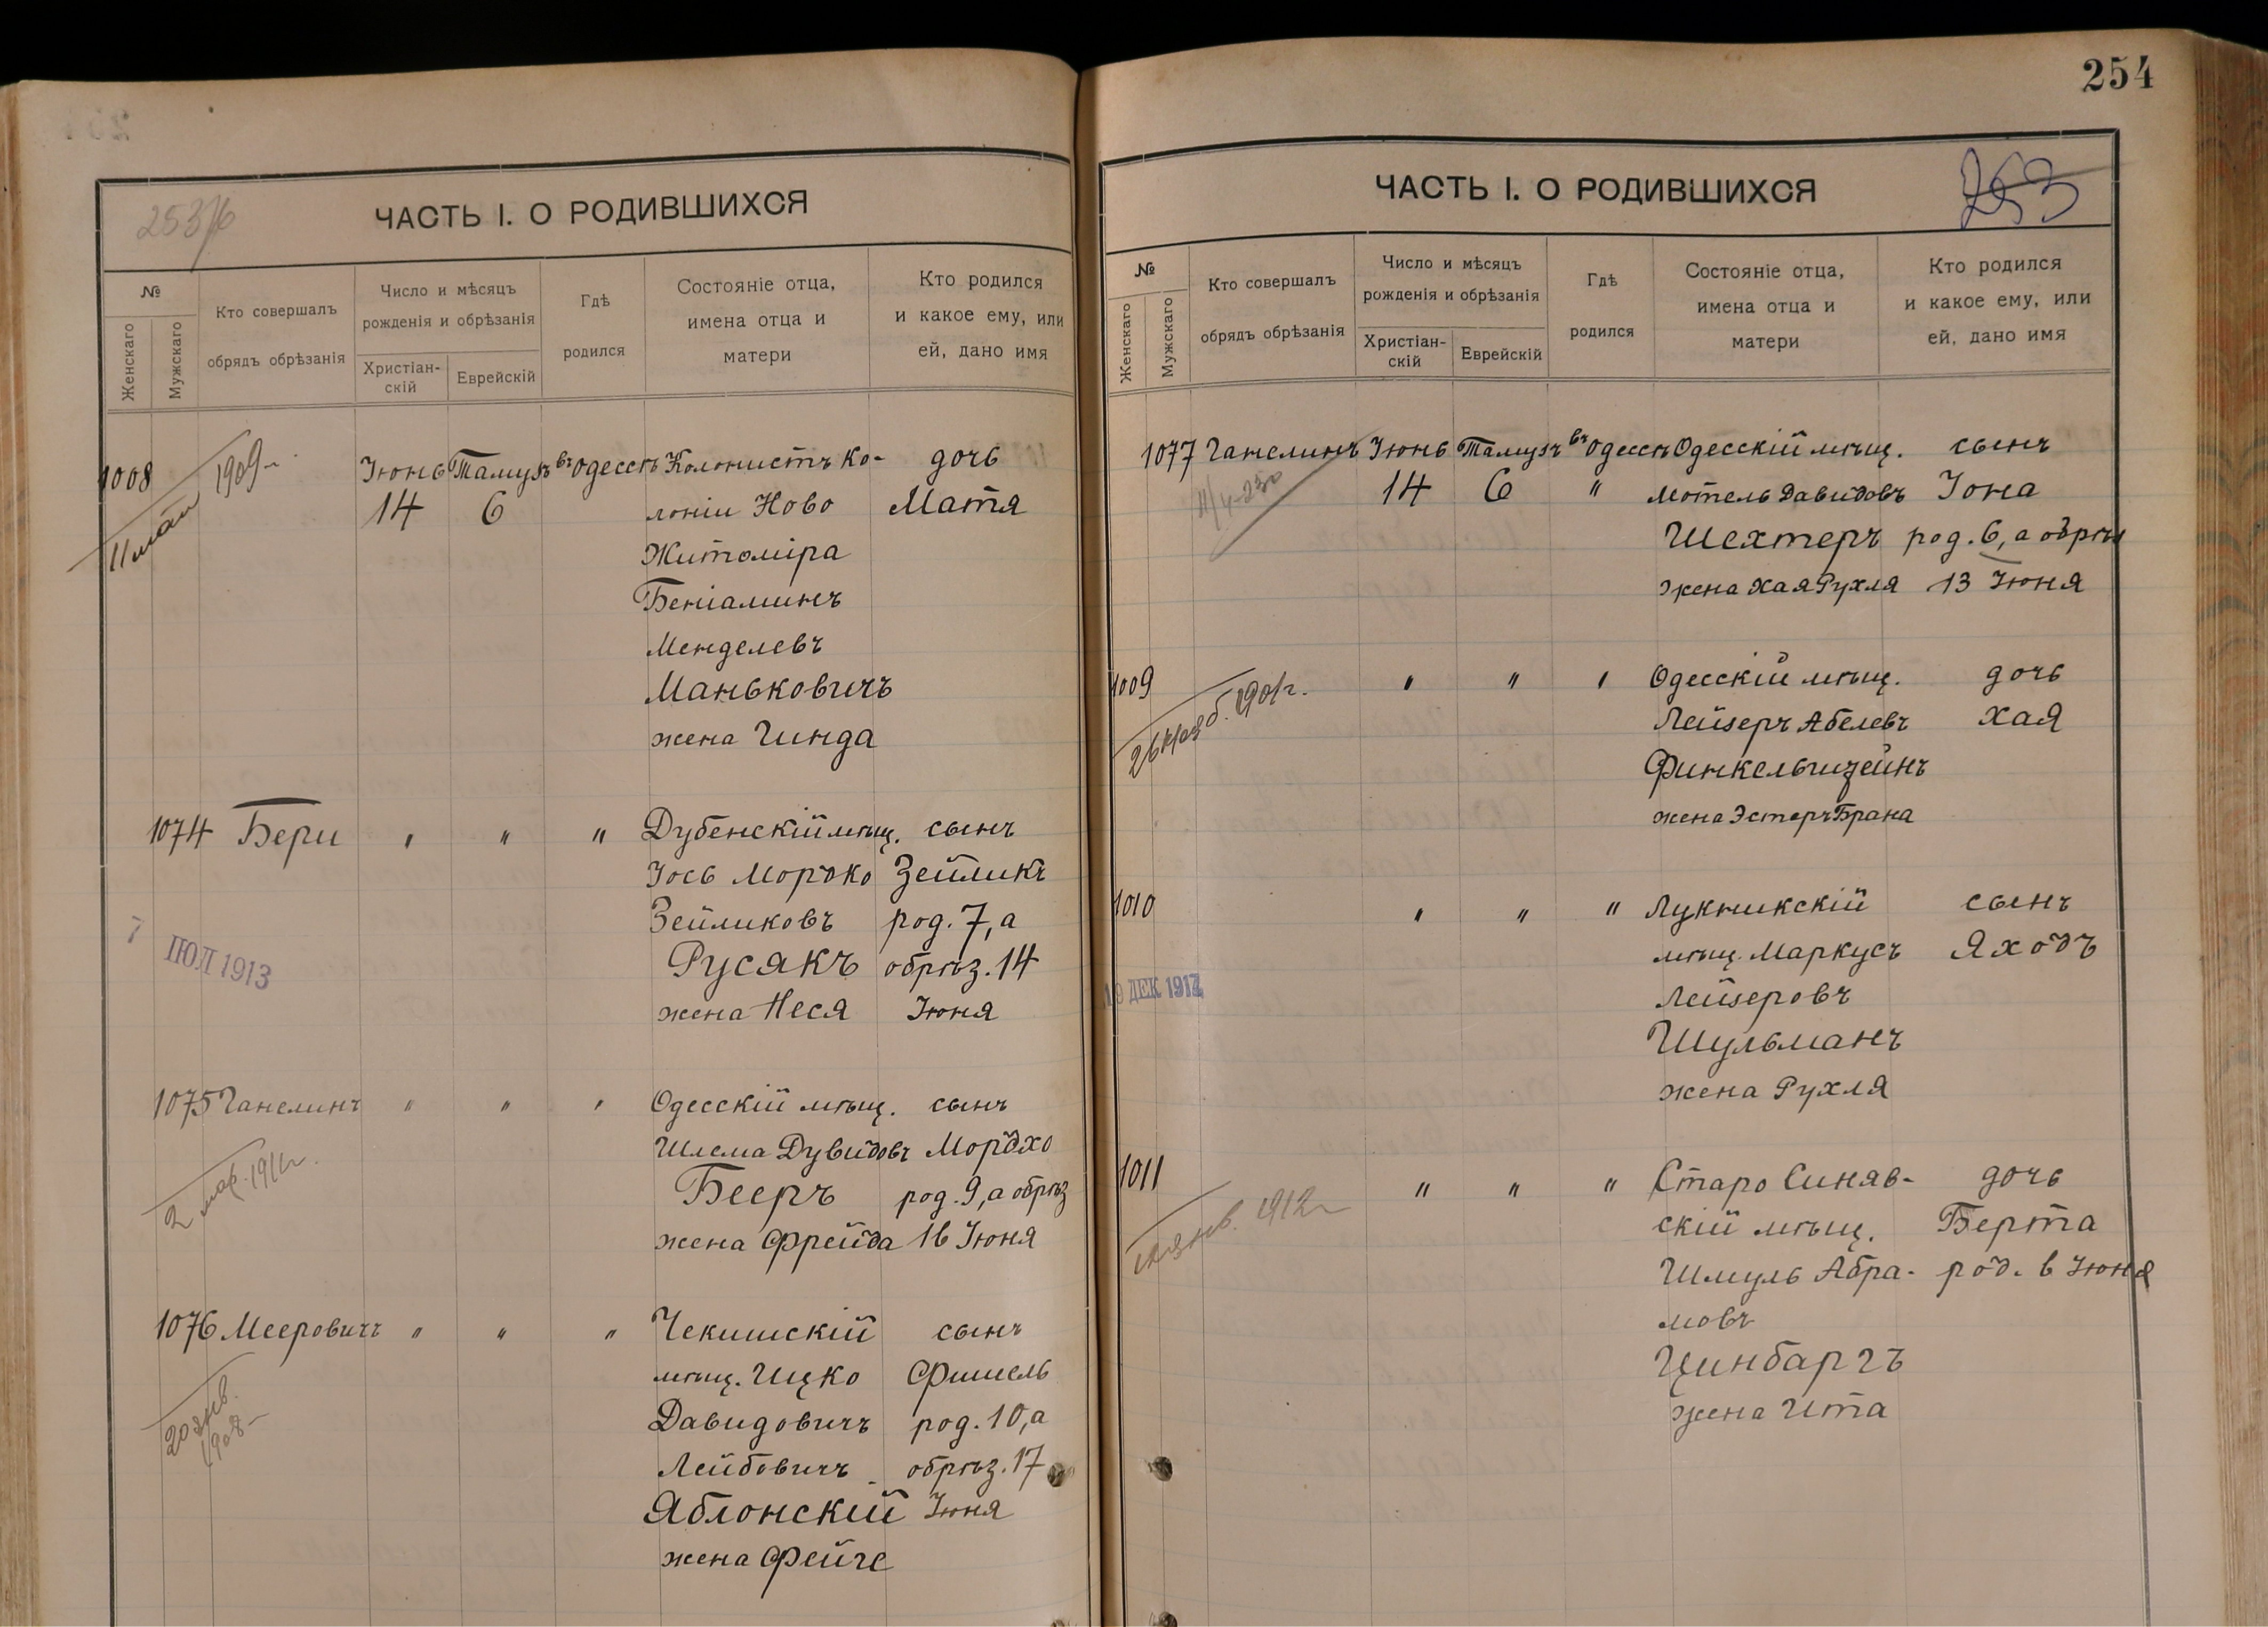 254
253/б
ЧАСТЬ I. О РОДИВШИХСЯ
№
Женскаго
Мужскаго
Кто совершалъ
обрядъ обрѣзанія
Число и мѣсяцъ
рожденія и обрѣзанія
Христіан-
скій
Еврейскій
Гдѣ
родился
Состояніе отца,
имена отца и
матери
Кто родился
и какое ему, или
ей, дано имя
1008 Іюнь Тамузъ въ Одессѣ Колонистъ Ко- дочь
11 мая 1909 г.
14 6 лоніи Ново Матя
Житоміра
Беніаминъ
Менделевъ
Маньковичъ
жена Гинда
1074 Бери " " " Дубенскій мѣщ. сынъ
Іось Мордко Зейликъ
Зейликовъ род. 7, а
Русякъ обрѣз. 14
жена Неся Іюня
7 ІЮЛ 1913
1075 Ганелинъ " " " Одесскій мѣщ. сынъ
Шлема Дувидовъ Мордхо
Бееръ род. 9, а обрѣз
жена Фрейда 16 Іюня
2 мар. 1911 г.
1076 Мееровичъ " " " Чекишскій сынъ
мѣщ. Ицко Фишель
Давидовичъ род. 10, а
Лейбовичъ обрѣз. 17
Яблонскій Іюня
жена Фейге
20 янв.
1908
253
ЧАСТЬ I. О РОДИВШИХСЯ
№
Женскаго
Мужскаго
Кто совершалъ
обрядъ обрѣзанія
Число и мѣсяцъ
рожденія и обрѣзанія
Христіан-
скій
Еврейскій
Гдѣ
родился
Состояніе отца,
имена отца и
матери
Кто родился
и какое ему, или
ей, дано имя
1077 Ганелинъ Іюнь Тамузъ въ Одессѣ Одесскій мѣщ. сынъ
14 6 " Мотель Давидовъ Іона
Шехтеръ род. 6, а обрѣз
жена Хая Рухля 13 Іюня
1009 " " " Одесскій мѣщ. дочь
Лейзеръ Абелевъ Хая
Финкельштейнъ
жена Эстеръ Брана
1010 " " " Лукникскій сынъ
мѣщ. Маркусъ Яходъ
Лейзеровъ
Шульманъ
жена Рухля
19 ДЕК 1912
1011 " " " Старо Синяв- дочь
скій мѣщ. Берта
Шмуль Абра- род. 6 Іюня
мовъ
Цинбаргъ
жена Ита
янв. 1912